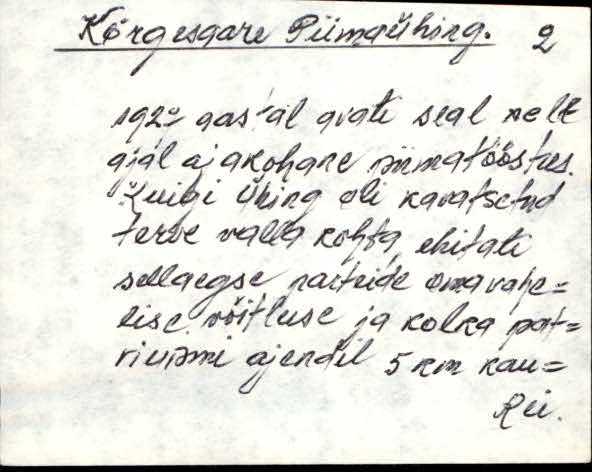 Kõrgesaare Piimaühing. 2
192º aastal avati seal selt
ajal ajakohane piimatööstus.
Kuigi ühing oli kavatsetud
terve valla kohta, ehitati
sellaegse parteide omavahe=
lise võitluse ja kolka pat=
riupmi ajendil 5 km kau=
Rei.